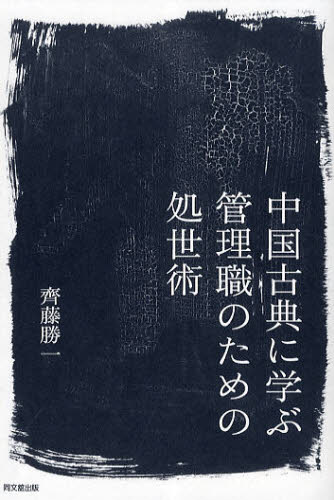 中国古典に学ぶ
管理職のための
処世術
齊藤勝一
同文舘出版